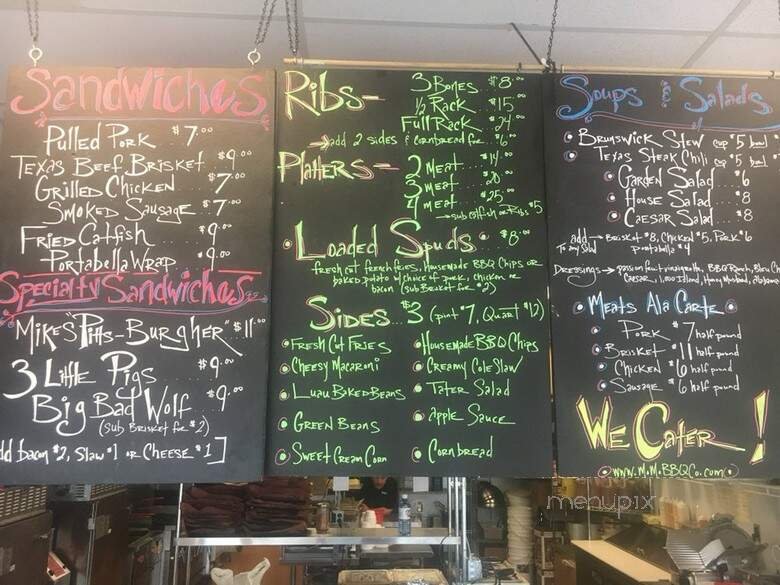 Sandwiches
Pulled Pork $7.00
Texas Beef Brisket $9.00
Grilled Chicken $7.00
Smoked Sausage $7.00
Fried Catfish $9.00
Portabella Wrap $9.00
Specialty Sandwiches
Mike's "Pitts-Burgher" $11.00
3 Little Pigs $9.00
Big Bad Wolf $9.00
(sub Brisket for $2)
dd bacon $2, Slaw $1 or Cheese $1]
Ribs-
3 Bones $8.00
½ Rack $15.00
Full Rack $24.00
→add 2 sides & cornbread for $6.00
Platters-
2 meat $14.00
3 meat $20.00
4 meat $25.00
→sub catfish or Ribs $5
Loaded Spuds $8.00
fresh cut french fries, Housemade BBQ Chips or
baked potato w/choice of pork, chicken or
bacon (sub Brisket for $2)
Sides $3 (pint $7, Quart $12)
Fresh Cut Fries
Housemade BBQ Chips
Cheesy Macaroni
Creamy Cole Slaw
Luau Baked Beans
Tater Salad
Green Beans
Apple Sauce
Sweet Cream Corn
Cornbread
Soups & Salads
Brunswick Stew cup $5 bowl
Texas Steak Chili cup $5 bowl
Garden Salad $6
House Salad $8
Caesar Salad $8
add → Brisket $8, Chicken $5, Pork $6
To Any Salad Portabella $4
Dressings → passion fruit vinaigrette, BBQ Ranch, Bleu Ch
Caesar, 1,000 Island, Honey Mustard,
Meats Ala Carte
Pork $7 half pound
Brisket $11 half pound
Chicken $6 half pound
Sausage $6 half pound
We Cater!
www.M.M.BBQCo.com
menupix